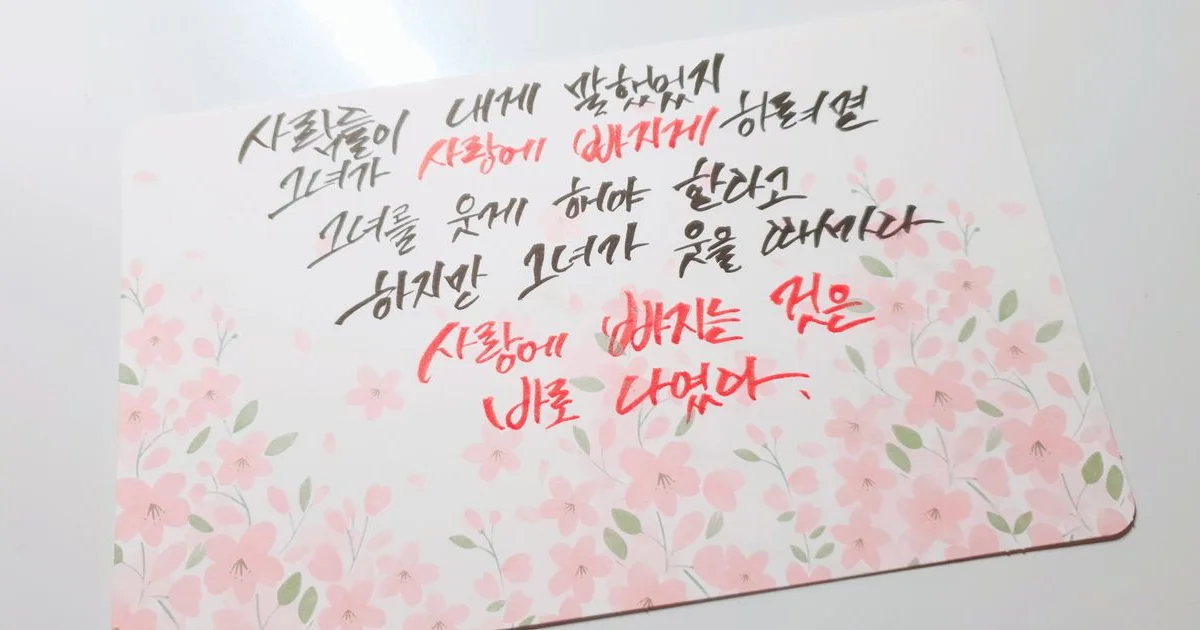 사람들이 내게 말했었지
그녀가 사랑에 빠지게 하려면
그녀를 웃게 해야 한다고
하지만 그녀가 웃을 때마다
사랑에 빠지는 것은
바로 나였다.